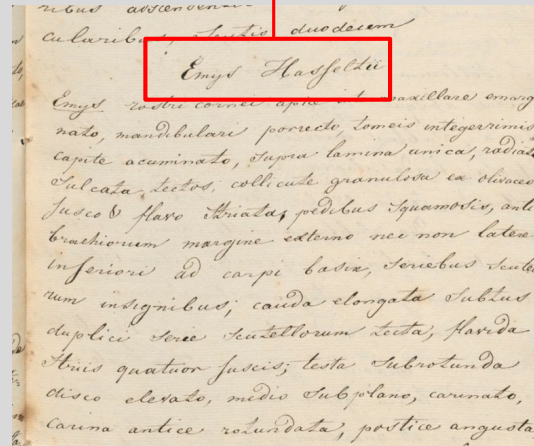 ribus adscendenti
cularibus, dentis duodecem
Emys Hasseltii
Emys rostri cornei apice intermaxillare emargi
nato, mandibulari porrecto, tomeis integerrimis
capite acuminato, supra lamina unica, radiat
sulcata, tectos, collicute granulosa ex olivaceo
fusco & flavo striata, pedibus squamosis, anti
brachiorum margine externo nec non latere
inferiori ad carpi basin, seriebus scutel
rum insignibus; cauda elongata subtus
duplici serie scutellorum tecta, flavida
striis quatuor fuscis; testa subrotunda
disco elevato, medio subplano, carinato,
carina antice rotundata, postice angusta